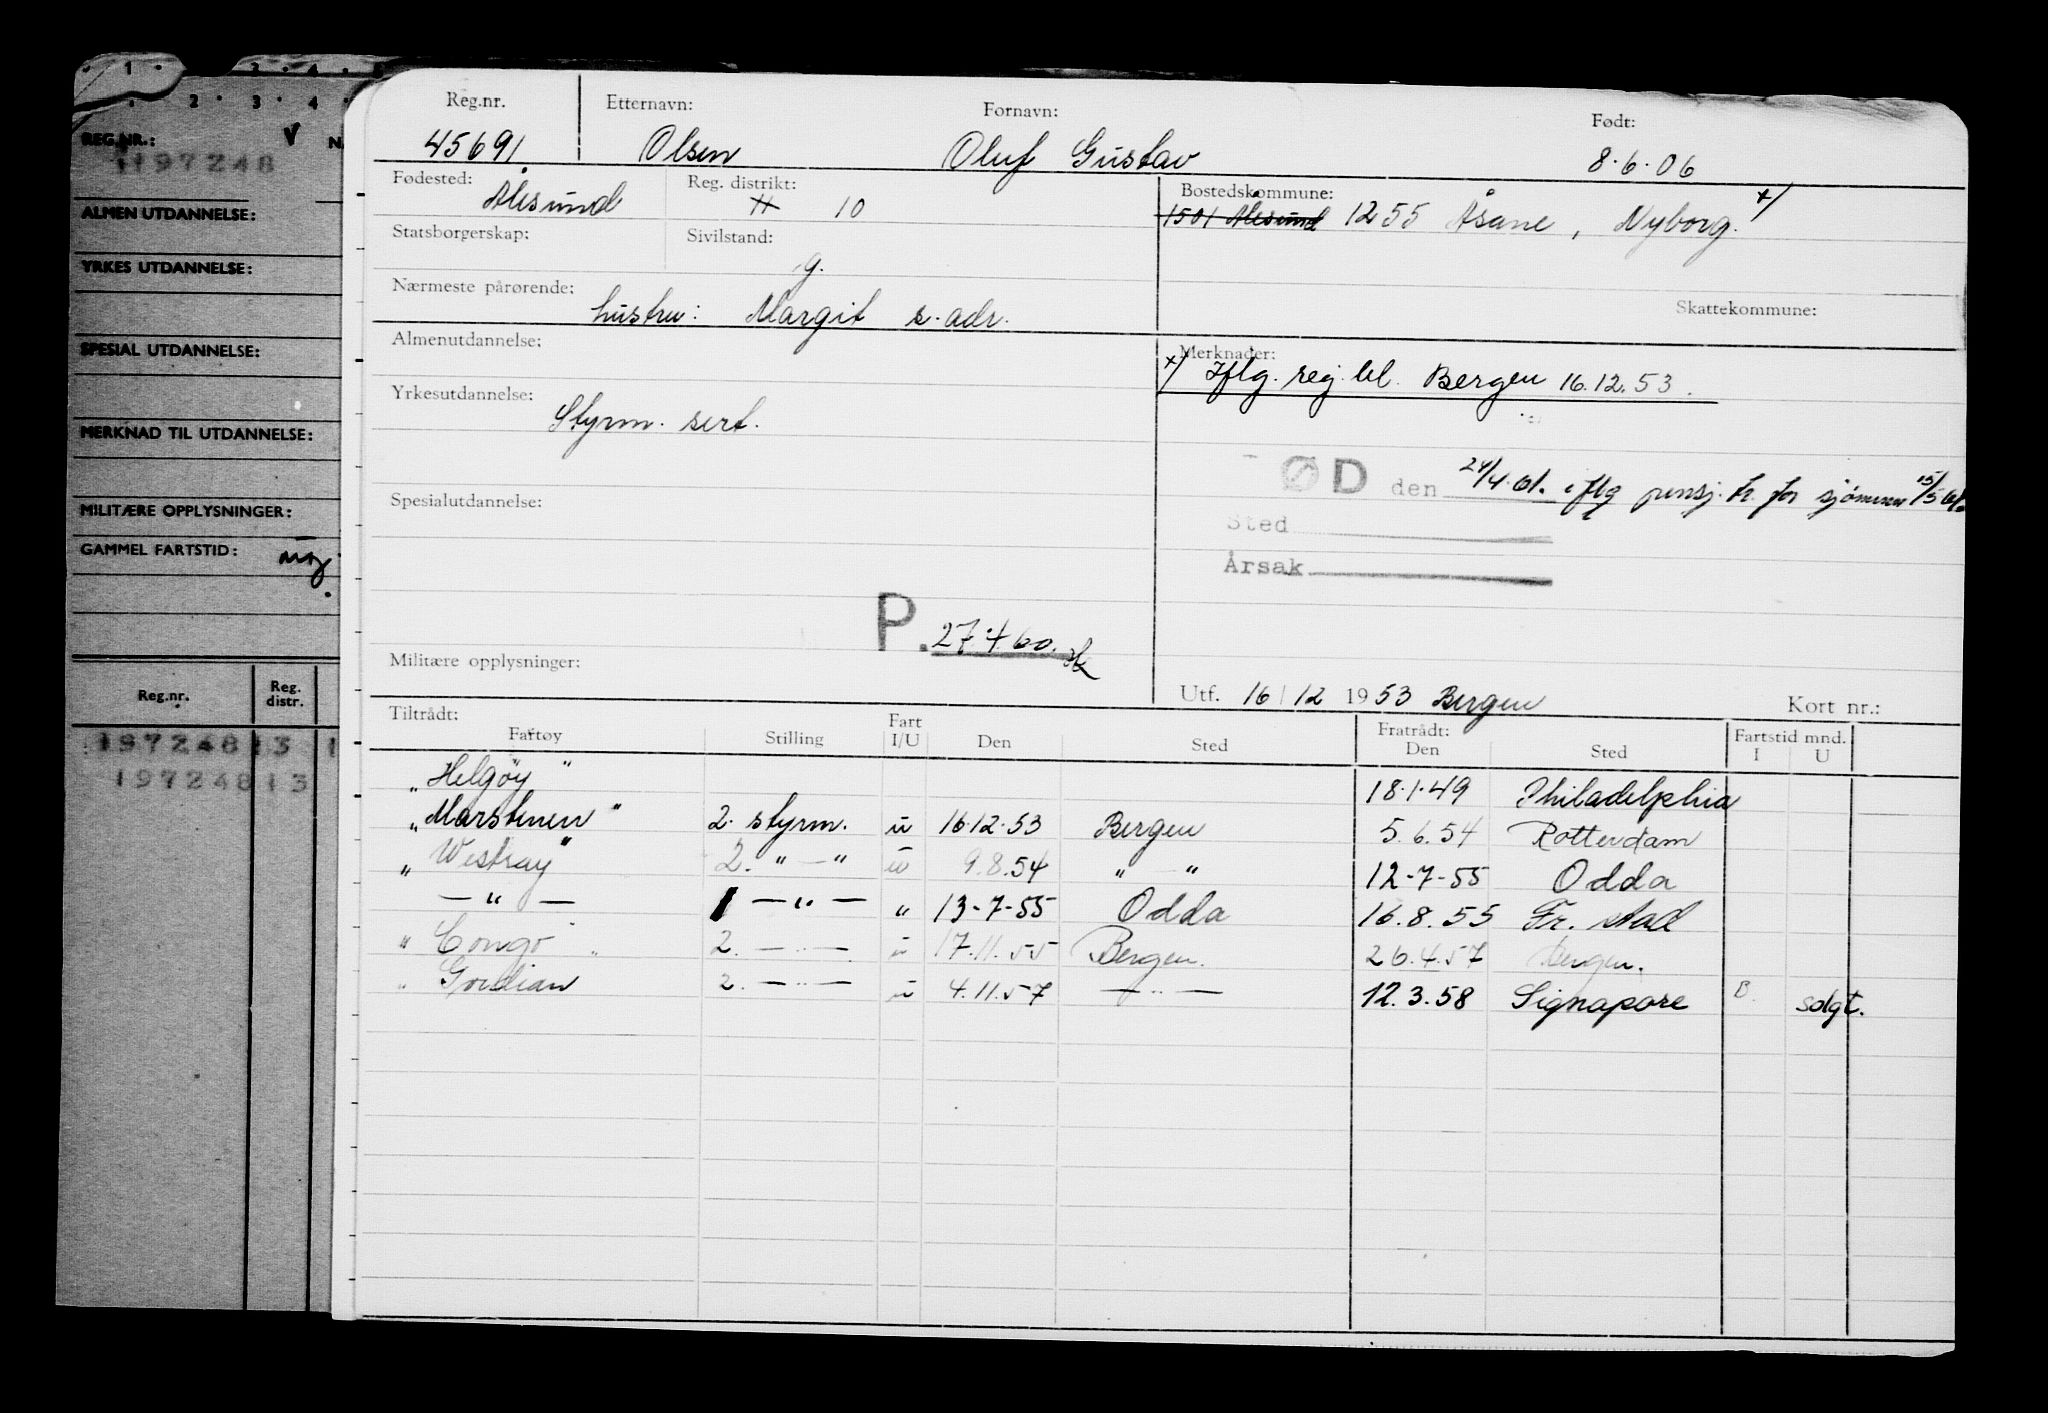 1 2 3 4
2 3 4
REG.NR.: V N
197248
ALMEN UTDANNELSE:
YRKES UTDANNELSE:
SPESIAL UTDANNELSE:
MERKNAD TIL UTDANNELSE:
MILITÆRE OPPLYSNINGER:
GAMMEL FARTSTID:
Reg.nr. Reg. distr.
197248 13 1
197248 13
Reg.nr. Etternavn: Fornavn: Født:
45691. Olsen Oluf Gustav 8.6.06
Fødested: Ålesund Reg. distrikt: 11 10 Bostedskommune:
1501 Ålesund 1255 Åsane, Nyborg. x/
Statsborgerskap: Sivilstand: g.
Nærmeste pårørende: hustru: Margit s. adr. Skattekommune:
Almenutdannelse: Merknader:
x/ Iflg. reg. bl. Bergen 16.12.53.
Yrkesutdannelse: Styrm. sert.
ØD den 24/4.61. iflg pensj. tr. for sjømenn 15/5 61.
Spesialutdannelse: Sted
Årsak
P. 27.4 60.
Militære opplysninger:
Utf. 16/12 1953 Bergen Kort nr.:
Tiltrådt: Fart Fratrådt: Fartstid mnd.
Fartøy Stilling I/U Den Sted Den Sted I U
"Helgøy" 18.1.49 Philadelphia
"Marstenen" 2. styrm. u 16.12.53 Bergen 5.6.54 Rotterdam
"Westray" 2. " — " u 9.8.54 " — " 12-7-55 Odda
— " — 1 — " — " 13-7-55 Odda 16.8.55 Fr. stad
"Congo" 2. — " — u 17.11.55 Bergen. 26.4.57 Bergen.
" Gordian 2. — " — u 4.11.57 — " — 12.3.58 Signapore B. solgt.